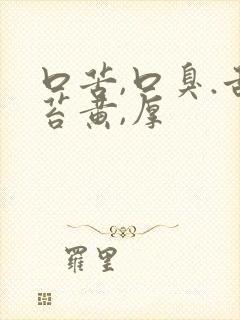 口苦,口臭.舌
苔黄,厚
羅里